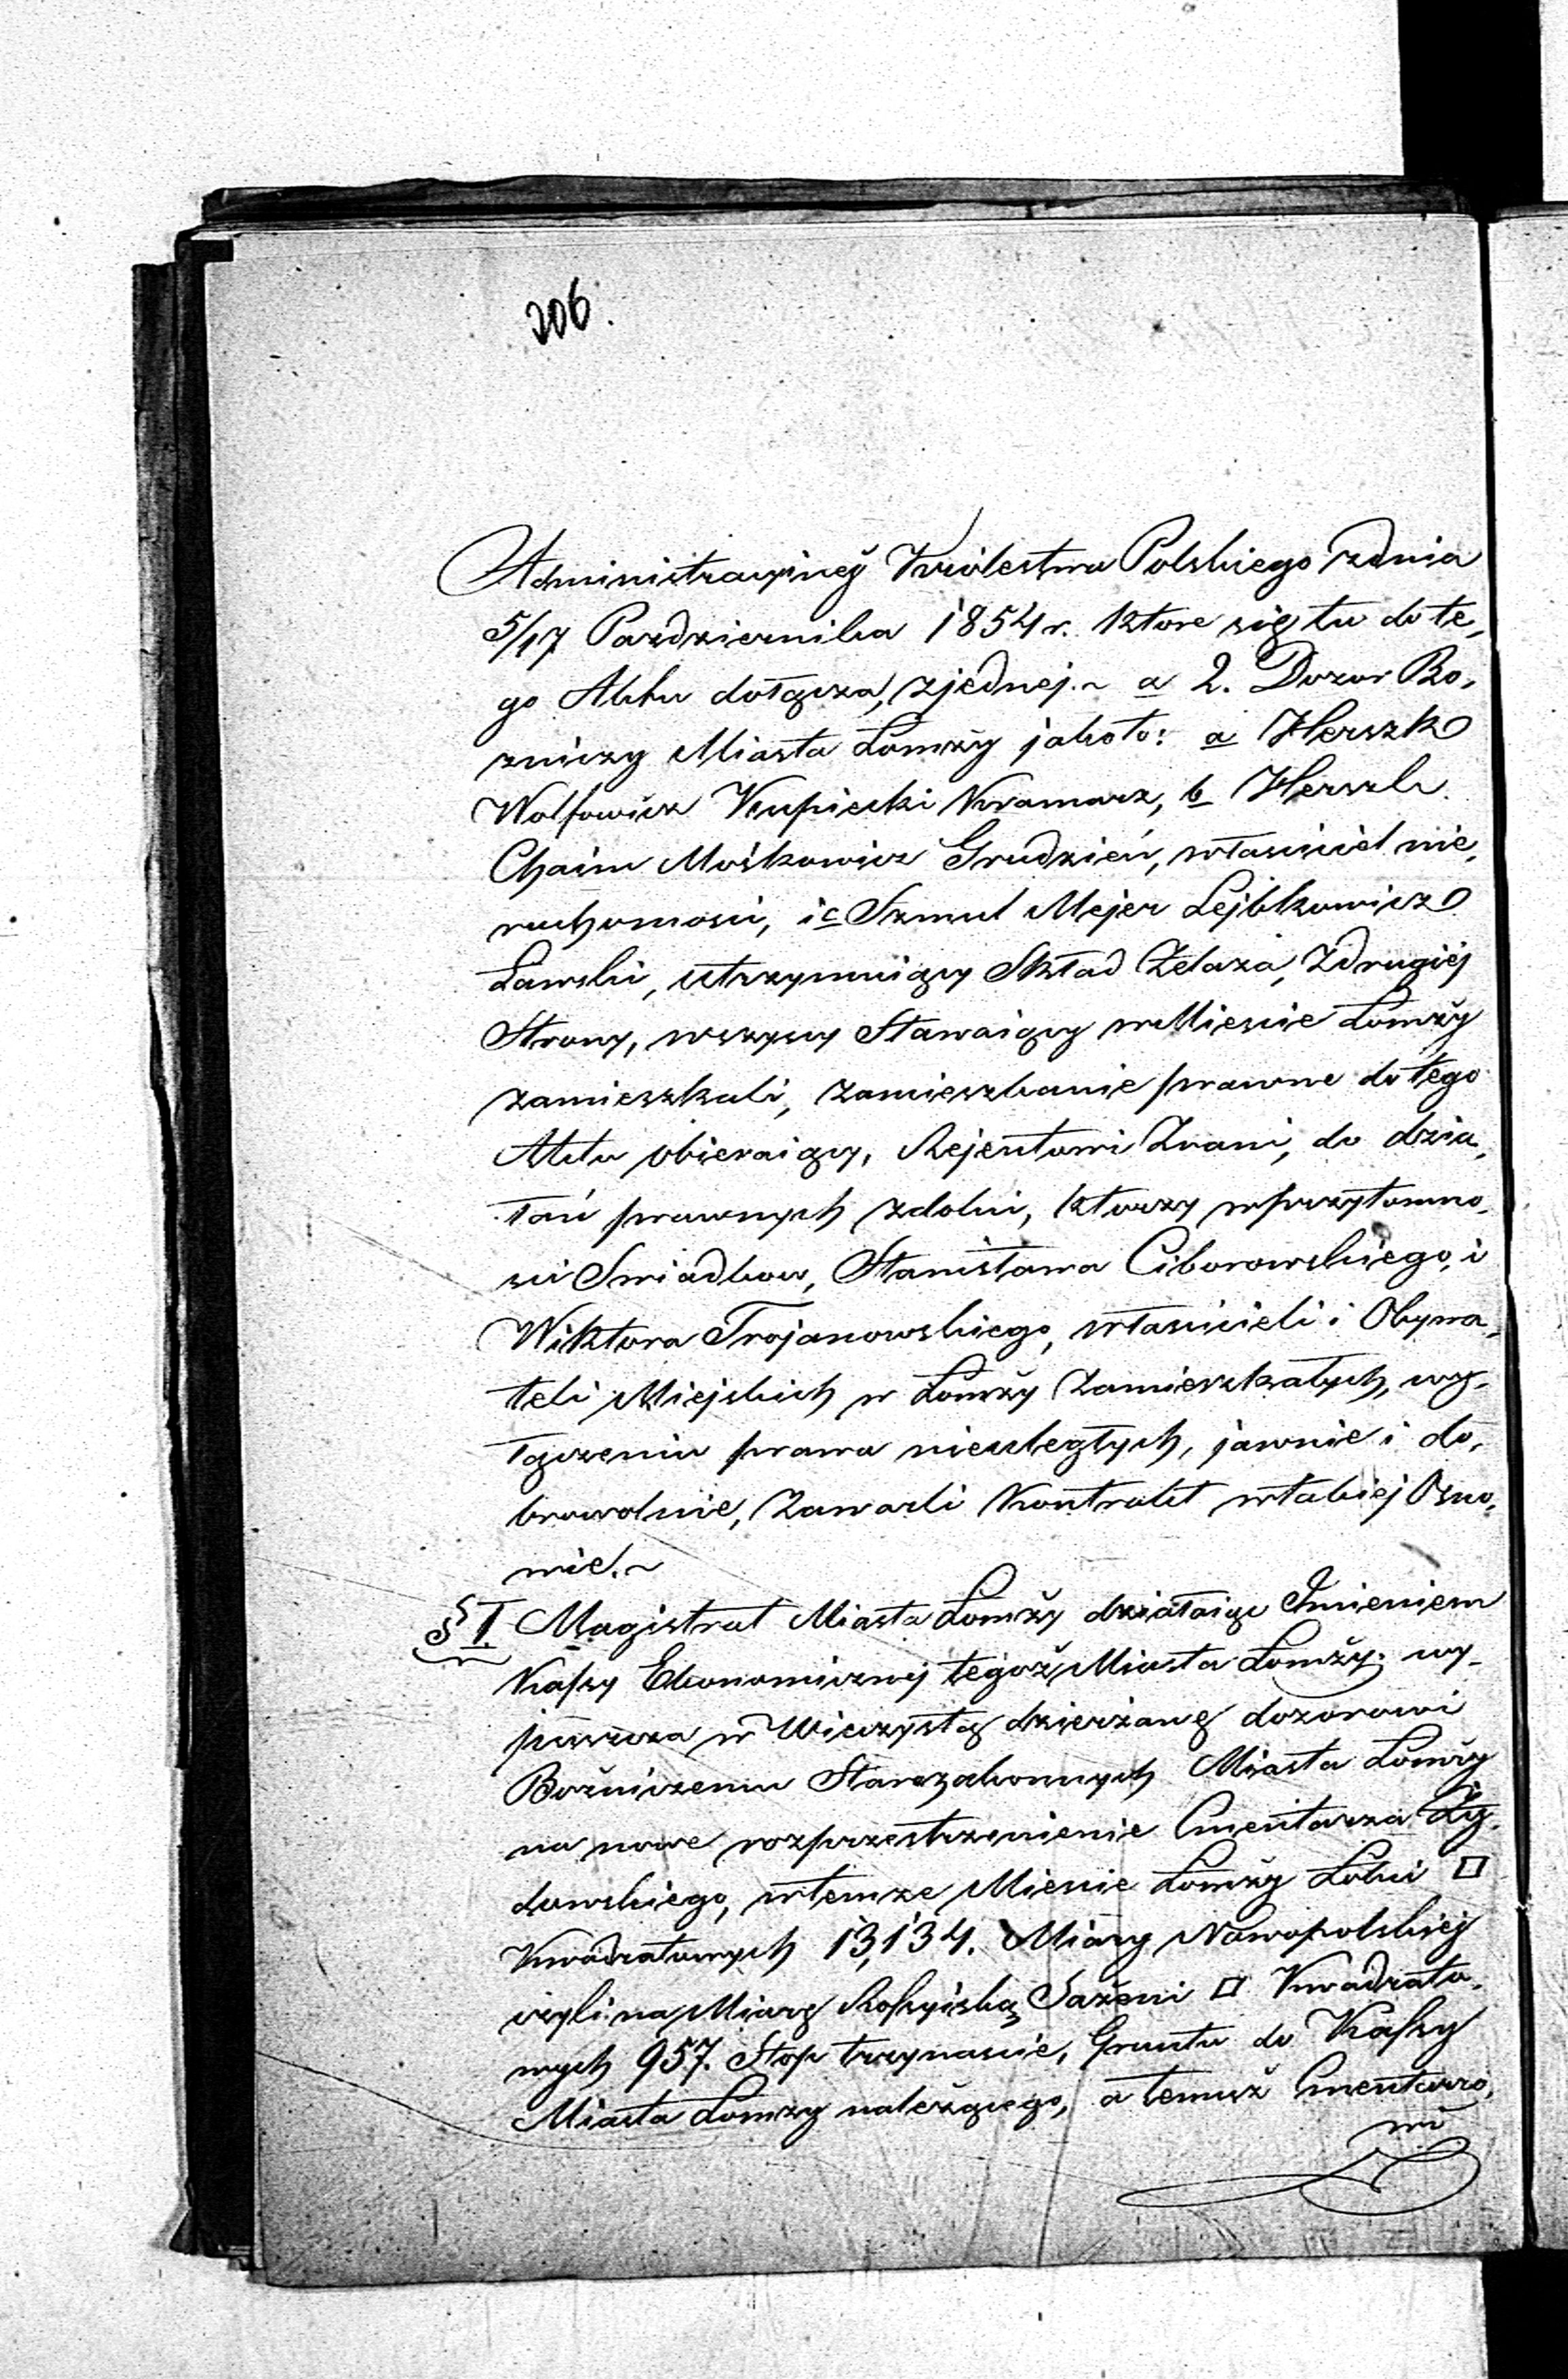 206.
Administracyjnej Królestwa Polskiego zdnia
5/17 Pazdziernika 1854 r. ktore się tu do te,
go Aktu dołącza, zjednej.~ a 2. Dozor Bo,
zniczy Miasta Łomży jakoto: a Herszk
Wolfowicz Kupiecki Kramarz, b Herszk
Chaim Mośkowicz Grudzień, własciciel nie,
ruchomosci, i c Szmul Mejer Lejbkowicz
Ławski, utrzymuiący Skład Żelaza, Zdrugiej
Strony, wszyscy Stawaiący wMiescie Łomży
zamieszkali, zamieszkanie prawne do tego
Aktu obieraiący, Rejentowi Znani, do dzia,
łań prawnych zdolni, ktorzy wprzytomno,
sci Swiadkow, Stanisława Ciborowskiego, i
Wiktora Trojanowskiego, własicieli i Obywa,
teli Miejskich w Łomży Zamieszkałych, wy,
łączeniu prawa nieuległych, jawnie i do,
browolnie, Zawarli Kontrakt wtakiej Osno,
wie.~
§ I. Magistrat Miasta Łomży działaiąc Imieniem
Kassy Ekonomicznej tegoż Miasta Łomży, wy_
puszcza w Wieczystą dzierżawę dozorowi
Bożniczemu Starozakonnych Miasta Łomży
na nowe rozprzestrzenienie Cmentarza Ży,
dowskiego, wtemze Miescie Łomży Łokci □
Kwadratowych 13,134. Miary Nowopolskiej
czyli na Miarę Rossyiską Sażeni □ Kwadrato,
wych 957. Stop trzynascie, Gruntu do Kassy
Miasta Łomzy należącego, a temuż Cmentarzo,
wi